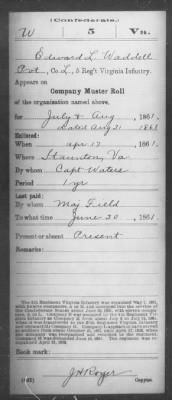 (Confederate.)
W 5 Va.
Edward L. Waddell
Pvt., Co. L, 5 Reg't Virginia Infantry.
Appears on
Company Muster Roll
of the organization named above,
for July & Aug, 1861.
Dated Aug 31 1861
Enlisted:
When Apr 17, 1861.
Where Staunton, Va
By whom Capt Waters
Period 1 yr
Last paid:
By whom Maj Field
To what time June 30, 1861.
Present or absent Present
Remarks:
Book mark:
(642) J H Royer
Copyist.